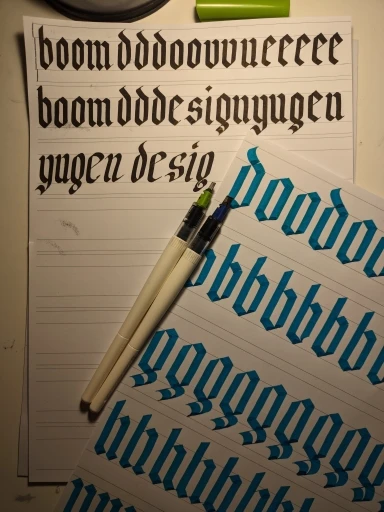 boom dddoovvueeeee
boomdddesignyugen
yugen desig
doodo
bbbbbbbb
gggggggg
hhhhhhhh